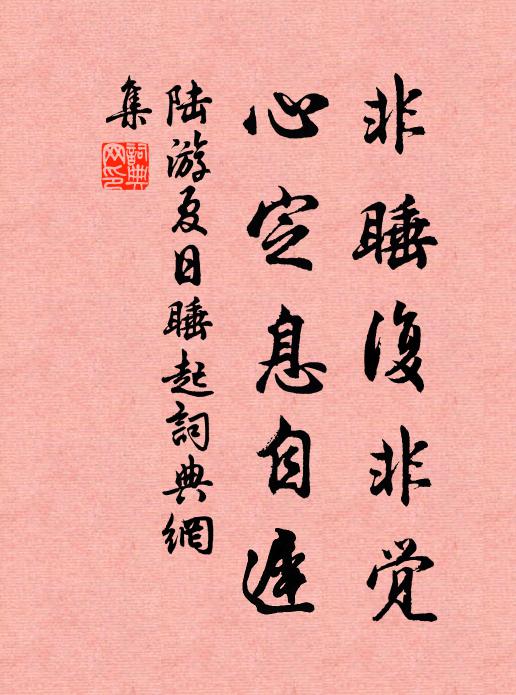 非睡復非觉
心定息自遲
陆游夏日睡起詞典網
集
詞典网印